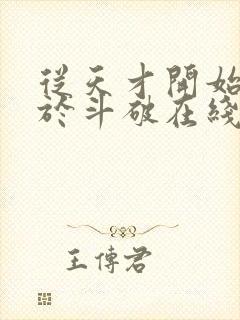 從天才開始
於斗破在綫
王傳君